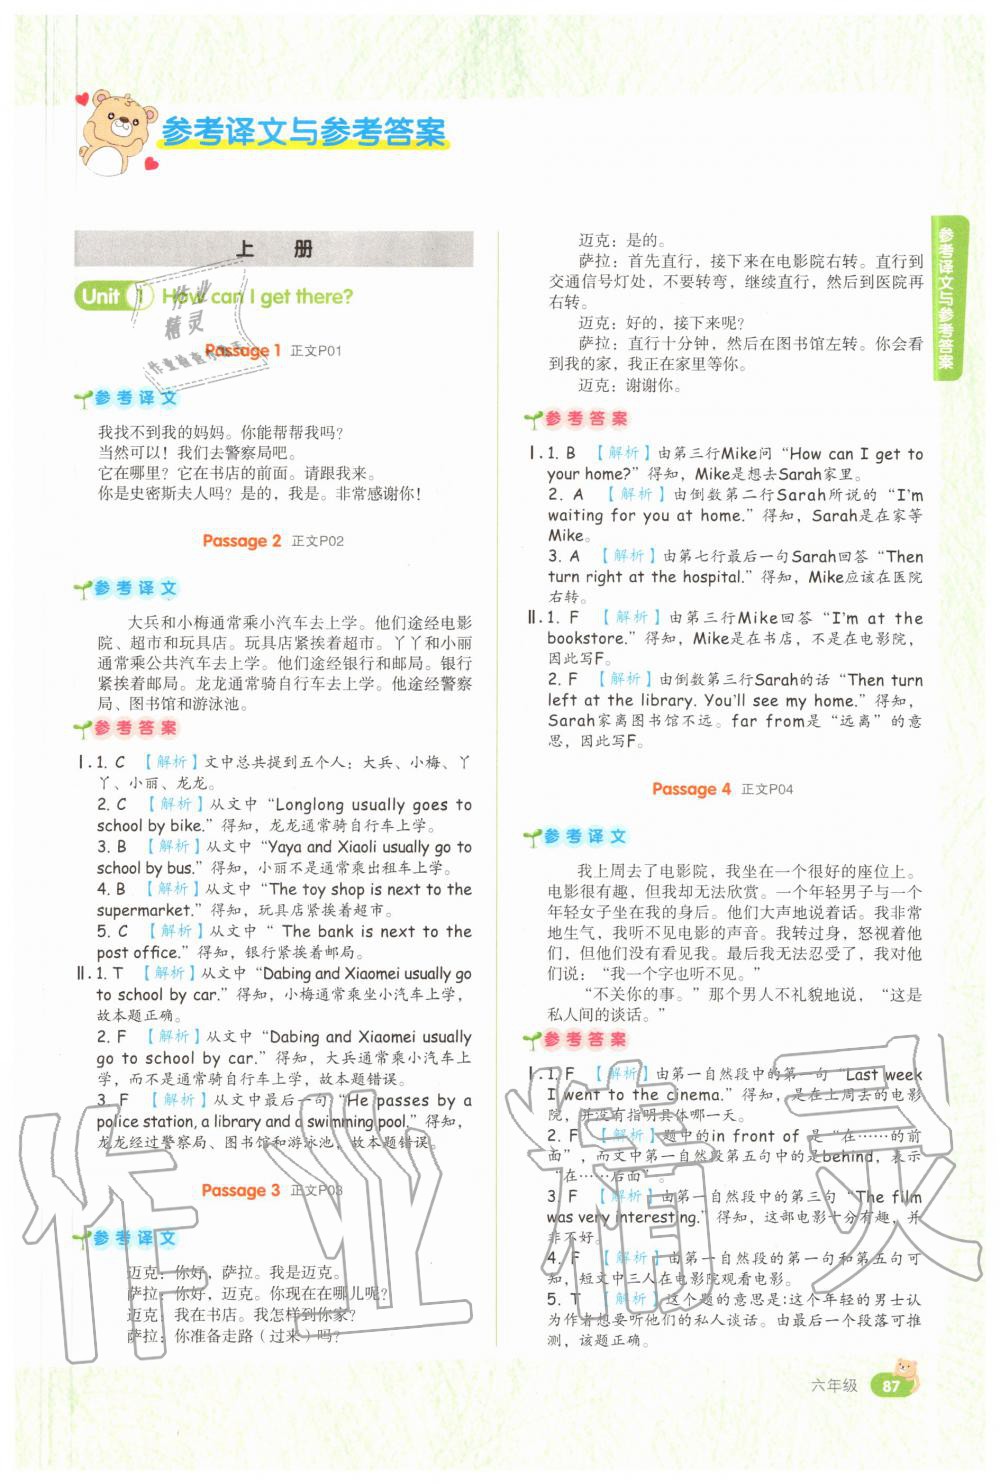 参考译文与参考答案
上 册
Unit 1 How can I get there?
Passage 1 正文P01
参考译文
我找不到我的妈妈。你能帮帮我吗？
当然可以！我们去警察局吧。
它在哪里？它在书店的前面。请跟我来。
你是史密斯夫人吗？是的，我是。非常感谢你！
Passage 2 正文P02
参考译文
大兵和小梅通常乘小汽车去上学。他们途经电影
院、超市和玩具店。玩具店紧挨着超市。丫丫和小丽
通常乘公共汽车去上学。他们途经银行和邮局。银行
紧挨着邮局。龙龙通常骑自行车去上学。他途经警察
局、图书馆和游泳池。
参考答案
Ⅰ. 1. C 【解析】文中总共提到五个人：大兵、小梅、丫
丫、小丽、龙龙。
2. C 【解析】从文中“Longlong usually goes to
school by bike.”得知，龙龙通常骑自行车上学。
3. B 【解析】从文中“Yaya and Xiaoli usually go to
school by bus.”得知，小丽不是通常乘出租车上学。
4. B 【解析】从文中“The toy shop is next to the
supermarket.”得知，玩具店紧挨着超市。
5. C 【解析】从文中“ The bank is next to the
post office.”得知，银行紧挨着邮局。
Ⅱ. 1. T 【解析】从文中“Dabing and Xiaomei usually go
to school by car.”得知，小梅通常乘坐小汽车上学，
故本题正确。
2. F 【解析】从文中“Dabing and Xiaomei usually
go to school by car.”得知，大兵通常乘小汽车上
学，而不是通常骑自行车上学，故本题错误。
3. F 【解析】从文中最后一句“He passes by a
police station, a library and a swimming pool.”得知，
龙龙经过警察局、图书馆和游泳池，故本题错误。
Passage 3 正文P03
参考译文
迈克：你好，萨拉。我是迈克。
萨拉：你好，迈克。你现在在哪儿呢？
迈克：我在书店。我怎样到你家？
萨拉：你准备走路（过来）吗？
迈克：是的。
萨拉：首先直行，接下来在电影院右转。直行到
交通信号灯处，不要转弯，继续直行，然后到医院再
右转。
迈克：好的，接下来呢？
萨拉：直行十分钟，然后在图书馆左转。你会看
到我的家，我正在家里等你。
迈克：谢谢你。
参考答案
Ⅰ. 1. B 【解析】由第三行Mike问“How can I get to
your home?”得知，Mike是想去Sarah家里。
2. A 【解析】由倒数第二行Sarah所说的“I’m
waiting for you at home.”得知，Sarah是在家等
Mike。
3. A 【解析】由第七行最后一句Sarah回答“Then
turn right at the hospital.”得知，Mike应该在医院
右转。
Ⅱ. 1. F 【解析】由第三行Mike回答“I’m at the
bookstore.”得知，Mike是在书店，不是在电影院，
因此写F。
2. F 【解析】由倒数第三行Sarah的话“Then turn
left at the library. You’ll see my home.”得知，
Sarah家离图书馆不远。far from是“远离”的意
思，因此写F。
Passage 4 正文P04
参考译文
我上周去了电影院，我坐在一个很好的座位上。
电影很有趣，但我却无法欣赏。一个年轻男子与一个
年轻女子坐在我的身后。他们大声地说着话。我非常
地生气，我听不见电影的声音。我转过身，怒视着他
们，但他们没有看见我。最后我无法忍受了，我对他
们说：“我一个字也听不见。”
“不关你的事。”那个男人不礼貌地说，“这是
私人间的谈话。”
参考答案
Ⅰ. 1. F 【解析】由第一自然段中的第一句“Last week
I went to the cinema.”得知，是在上周去的电影
院，并没有指明具体哪一天。
2. F 【解析】题中的in front of 是“在……的前
面”，而文中第一自然段第五句中的是behind，表示
“在……后面”。
3. F 【解析】由第一自然段中的第三句“The film
was very interesting.”得知，这部电影十分有趣，并
非不好。
4. F 【解析】由第一自然段的第一句和第五句可
知，短文中三人在电影院观看电影。
5. T 【解析】这个题的意思是：这个年轻的男士认
为作者想要听他们的私人谈话。由最后一个段落可推
测，该题正确。
参考译文与参考答案
六年级 87
作业精灵
作业
精灵
作业检查小助手